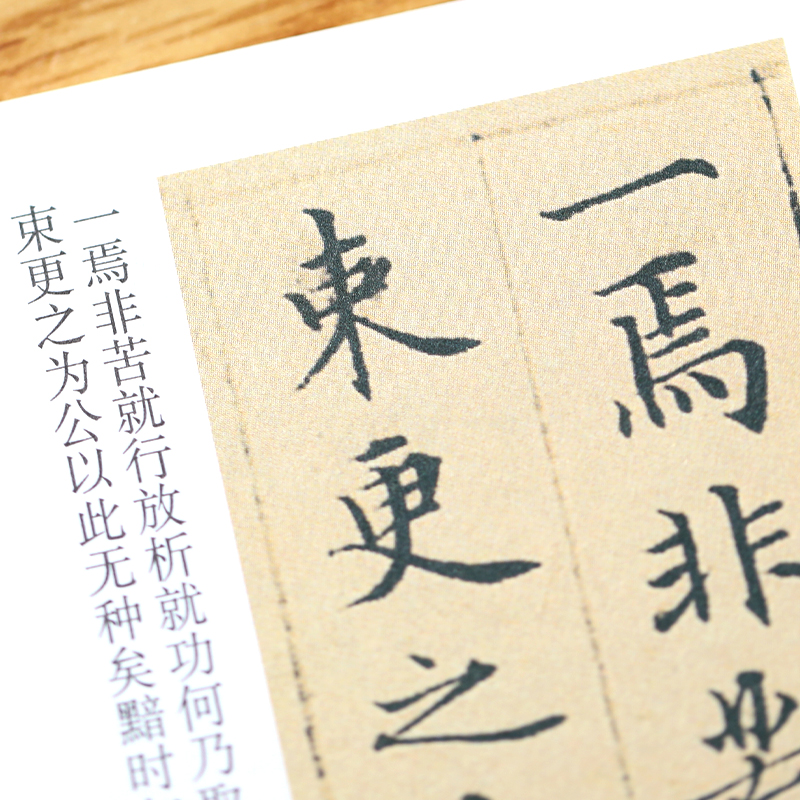 一焉非
束更之
一焉非苦就行放析就功何乃
束更之为公以此无种矣黯时